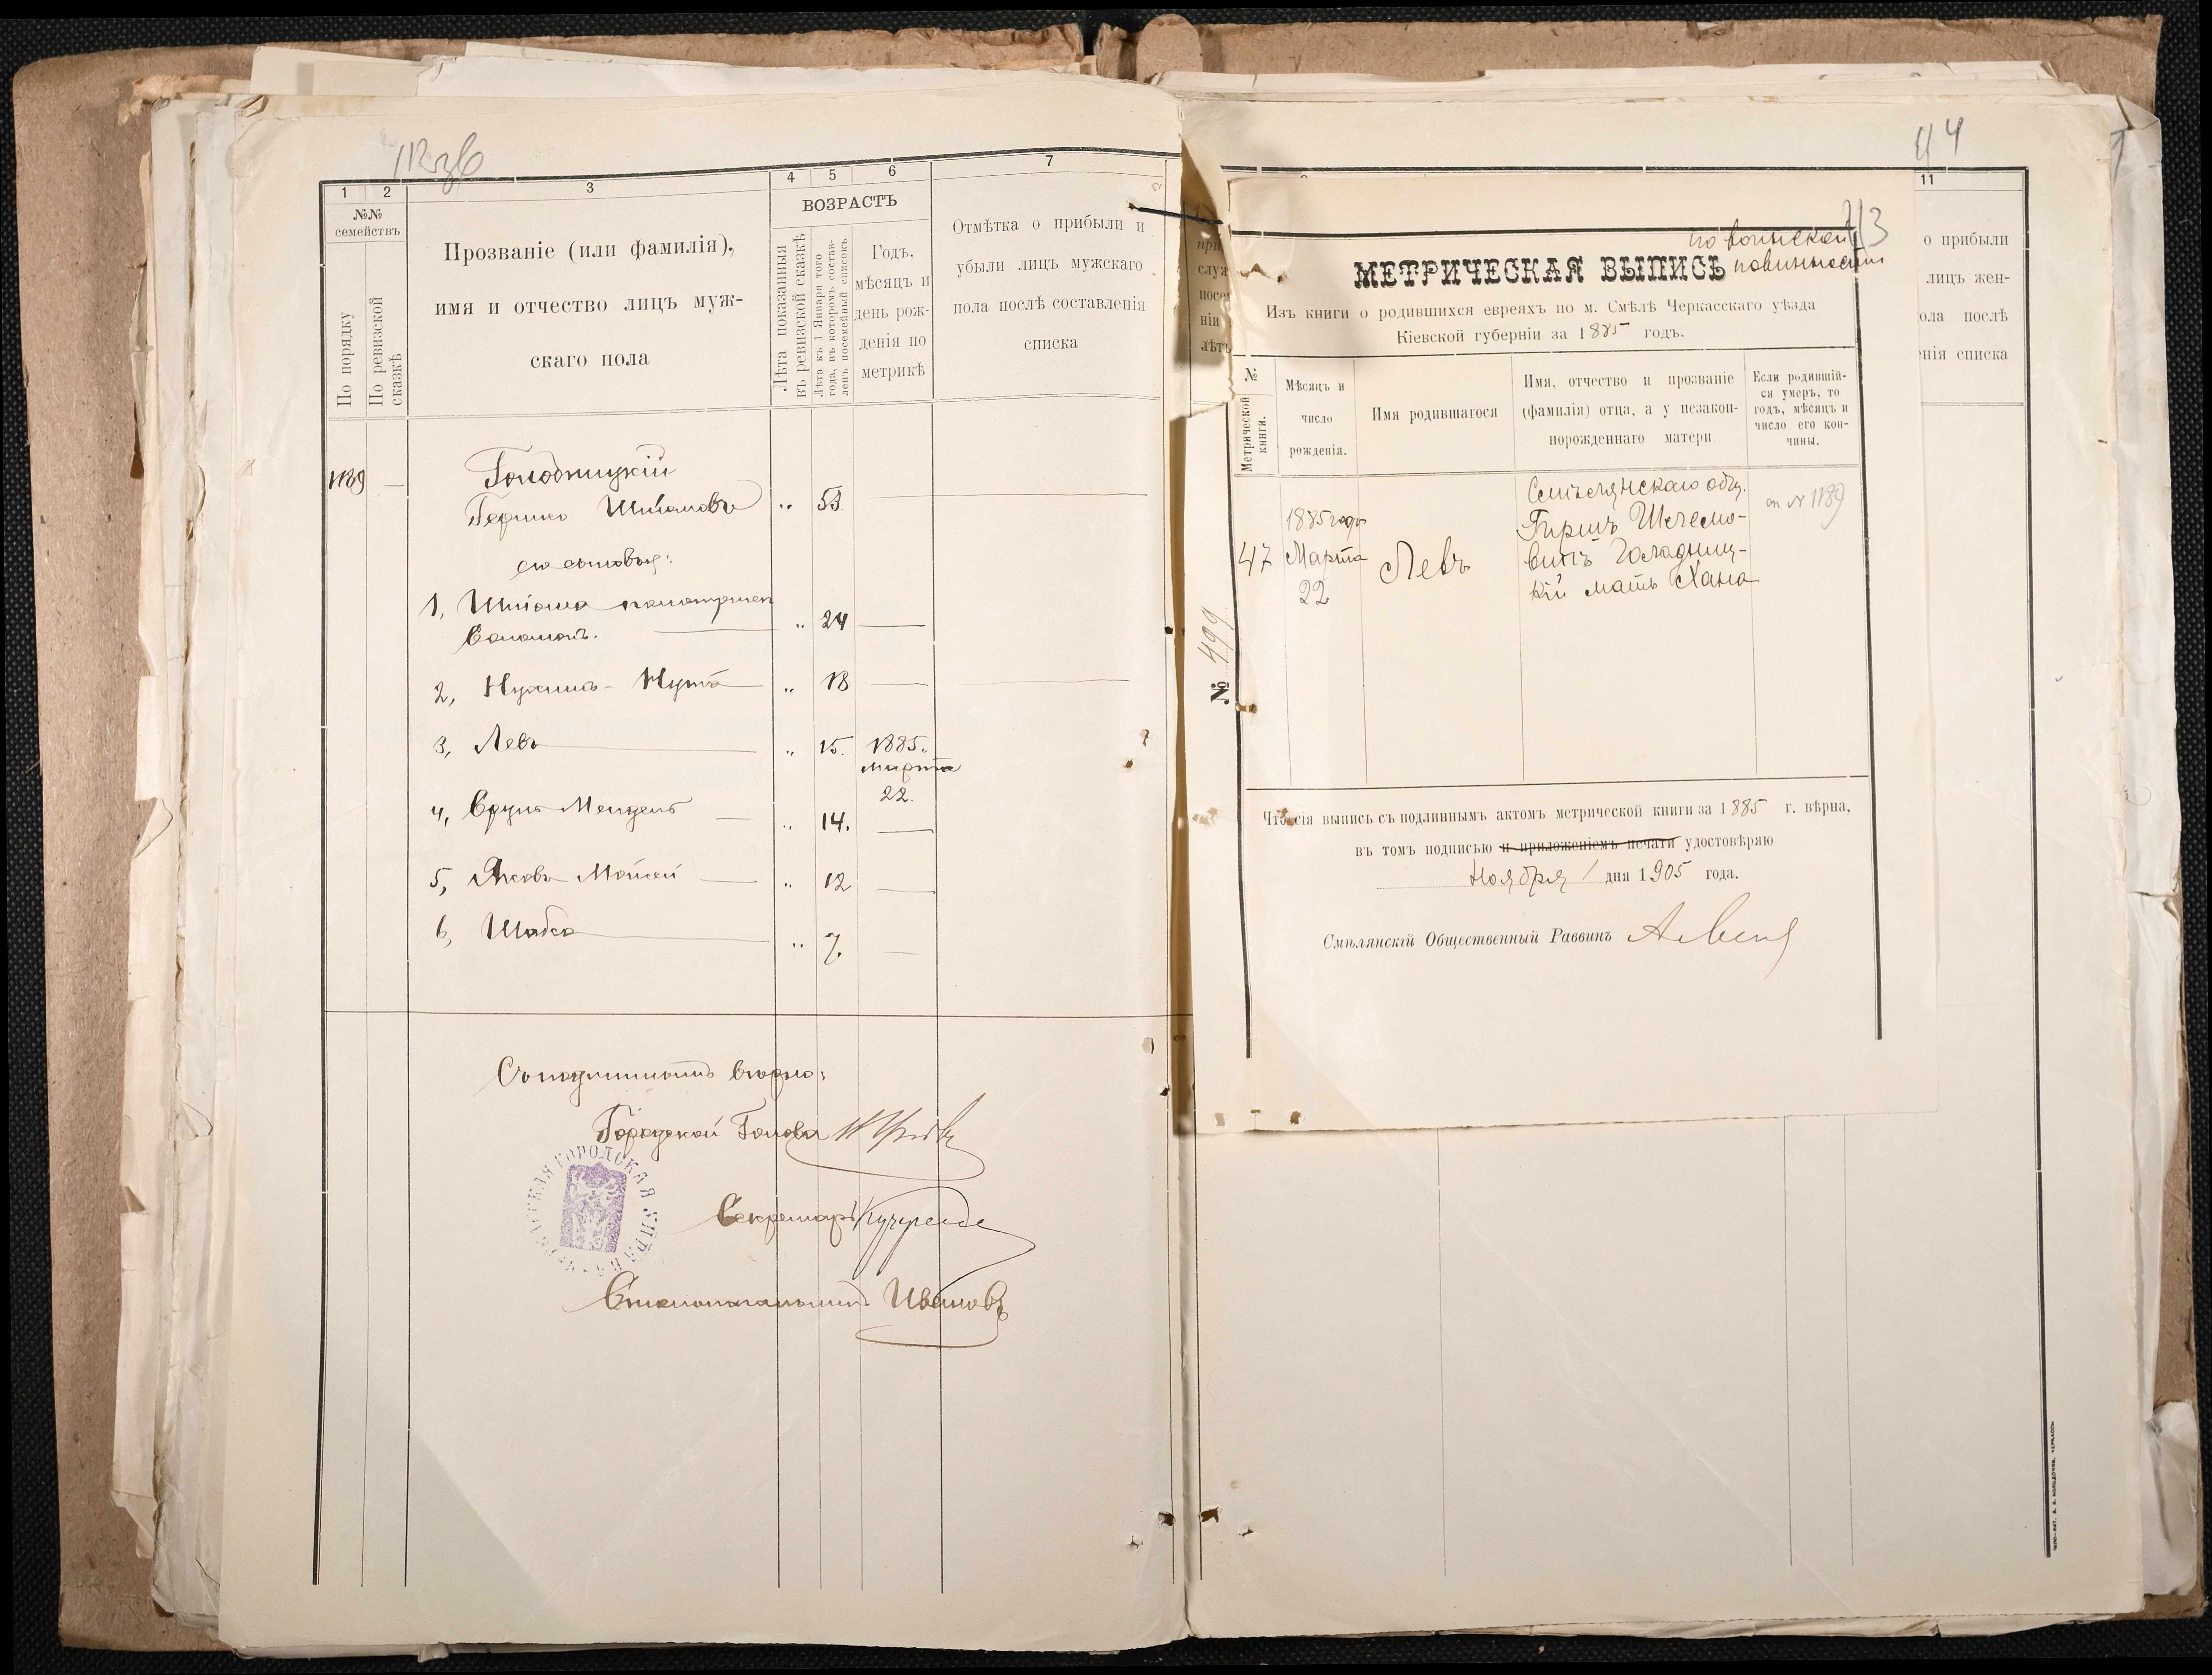 112 зв
1 2 3 4 5 6 7
№№ семействъ
По порядку
По ревизской сказкѣ
Прозваніе (или фамилія),
имя и отчество лицъ муж-
скаго пола
ВОЗРАСТЪ
Лѣта показанныя въ ревизской сказкѣ
Лѣта къ 1 Января того года, въ которомъ состав-ленъ посемейный списокъ
Годъ,
мѣсяцъ и
день рож-
денія по
метрикѣ
Отмѣтка о прибыли и
убыли лицъ мужскаго
пола послѣ составленія
списка
1189 —
Голодницкій
Гершко Шліомовъ " 53
его сыновья:
1, Шліома
Соломонъ. " 24
2, Нухимъ-Нута " 18
3, Левъ " 15. 1885.
марта
22.
4, Срулъ Мендель " 14.
5, Яковъ-Мойсей " 12
6, Шабса " 7.
Съ подлиннымъ вѣрно:
Городской Голова
Секретарь
Столоначальникъ Ивановъ
ГОРОДСКАЯ УПРАВА
44
11
о прибыли
лицъ жен-
ола послѣ
енія списка
113
по воинской
повинности
МЕТРИЧЕСКАЯ ВЫПИСЬ
Изъ книги о родившихся евреяхъ по м. Смѣлѣ Черкасскаго уѣзда
Кіевской губерніи за 1885 годъ.
№ Метрической книги.
Мѣсяцъ и
число
рожденія.
Имя родившагося
Имя, отчество и прозваніе
(фамилія) отца, а у незакон-
норожденнаго матери.
Если родившій-
ся умеръ, то
годъ, мѣсяцъ и
число его кон-
чины.
47
1885 года
Марта
22
Левъ
общ.
Гиршъ Шлемо-
вичъ Голадниц-
кій мать Хана
№ 1189
№ 499
Что сія выпись съ подлиннымъ актомъ метрической книги за 1885 г. вѣрна,
въ томъ подписью и приложеніемъ печати удостовѣряю
Ноября 1 дня 1905 года.
Смѣлянскій Общественный Раввинъ